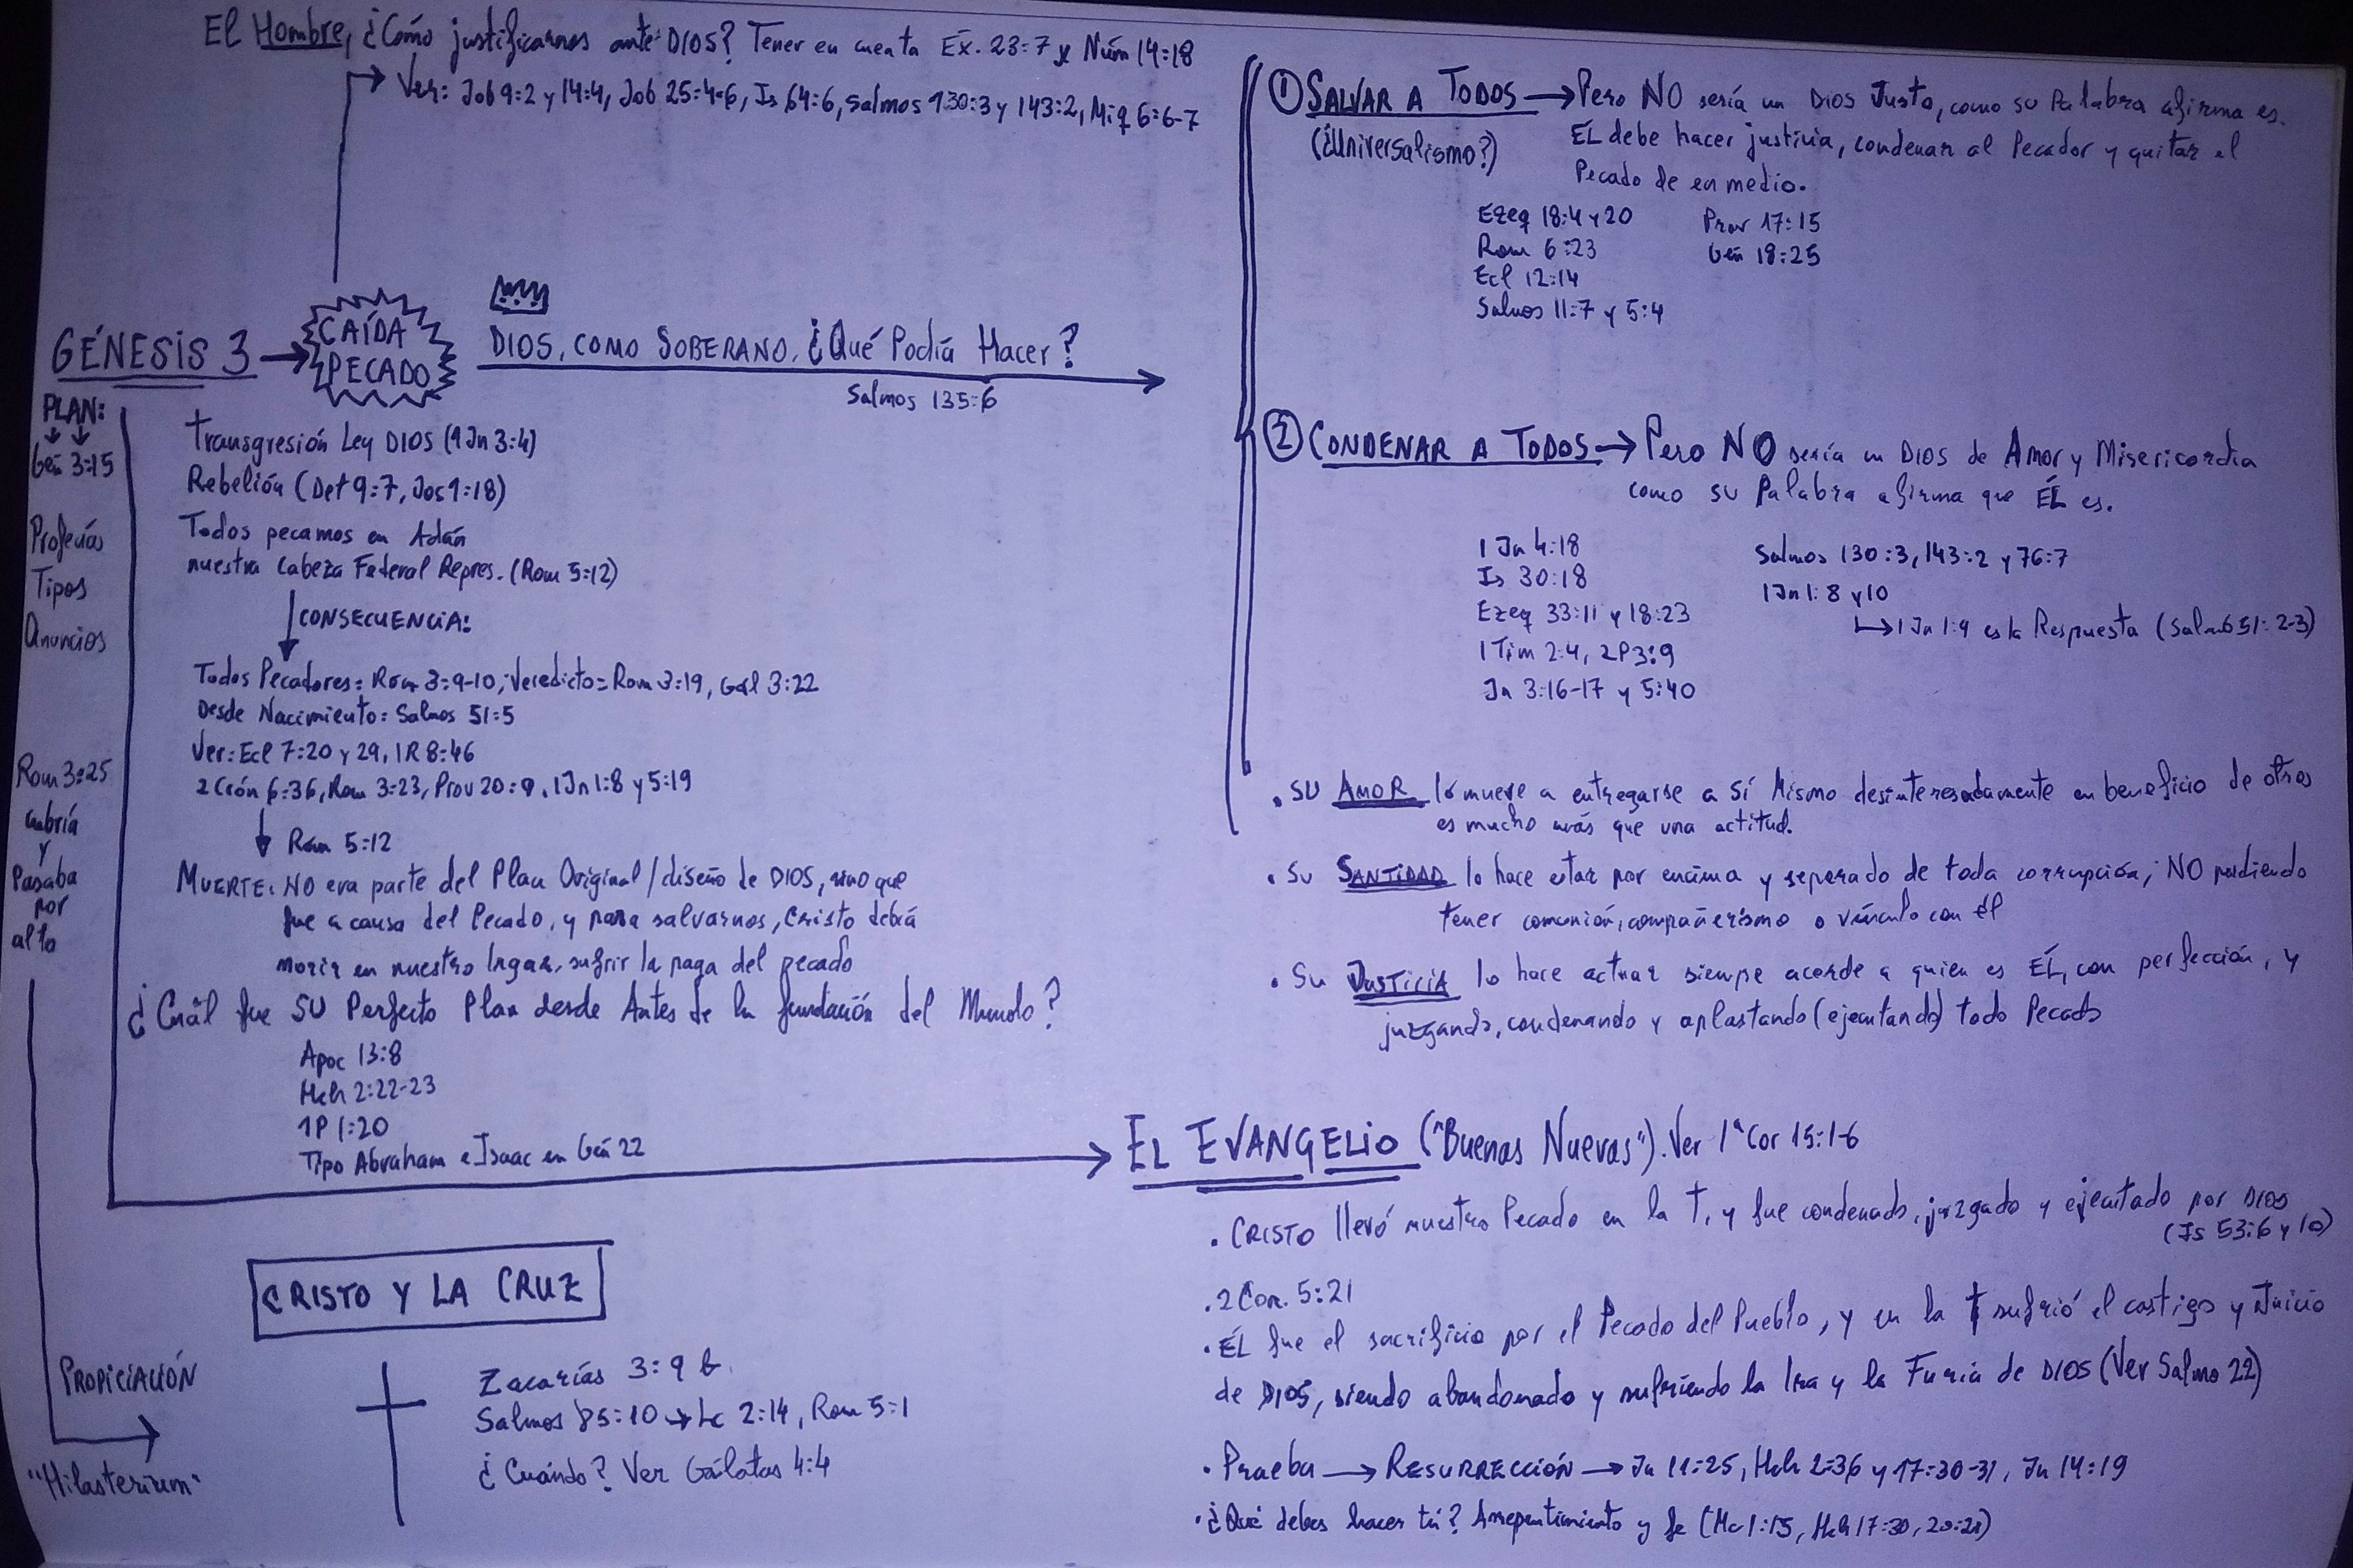 El Hombre, ¿Cómo justificarnos ante DIOS? Tener en cuenta Ex. 23:7 y Núm 14:18
Ver: Job 9:2 y 14:4, Job 25:4-6, Is 64:6, Salmos 130:3 y 143:2, Miq 6:6-7
GÉNESIS 3
CAÍDA
PECADO
DIOS, COMO SOBERANO, ¿Qué Podía Hacer?
Salmos 135:6
PLAN:
Gén 3:15
Profecías
Tipos
Anuncios
Rom 3:25
cubría
y
Pasaba
por
alto
PROPICIACIÓN
"Hilasterium"
Transgresión Ley DIOS (1 Jn 3:4)
Rebelión (Det 9:7, Jos 1:18)
Todos pecamos en Adán
nuestra Cabeza Federal Repres. (Rom 5:12)
CONSECUENCIA:
Todos Pecadores: Rom 3:9-10, Veredicto: Rom 3:19, Gál 3:22
Desde Nacimiento: Salmos 51:5
Ver: Ecl 7:20 y 29, 1R 8:46
2 Crón 6:36, Rom 3:23, Prov 20:9, 1 Jn 1:8 y 5:19
Rom 5:12
MUERTE: NO era parte del Plan Original/diseño de DIOS, sino que
fue a causa del Pecado, y para salvarnos, Cristo debía
morir en nuestro lugar, sufrir la paga del pecado
¿Cuál fue SU Perfecto Plan desde Antes de la fundación del Mundo?
Apoc 13:8
Hch 2:22-23
1P 1:20
Tipo Abraham e Isaac en Gén 22
CRISTO Y LA CRUZ
Zacarías 3:9 b.
Salmos 85:10 → Lc 2:14, Rom 5:1
¿Cuándo? Ver Gálatas 4:4
① SALVAR A TODOS → Pero NO sería un DIOS Justo, como su Palabra afirma es.
(¿Universalismo?) ÉL debe hacer justicia, condenar al Pecador y quitar el
Pecado de en medio.
Ezeq 18:4 y 20 Prov 17:15
Rom 6:23 Gén 18:25
Ecl 12:14
Salmos 11:7 y 5:4
② CONDENAR A TODOS → Pero NO sería un DIOS de Amor y Misericordia
como su Palabra afirma que ÉL es.
1 Jn 4:18 Salmos 130:3, 143:2 y 76:7
Is 30:18 1 Jn 1:8 y 10
Ezeq 33:11 y 18:23 → 1 Jn 1:9 es la Respuesta (Salmo 51:2-3)
1 Tim 2:4, 2P 3:9
Jn 3:16-17 y 5:40
• SU AMOR lo mueve a entregarse a Sí Mismo desinteresadamente en beneficio de otros
es mucho más que una actitud.
• Su SANTIDAD lo hace estar por encima y separado de toda corrupción; NO pudiendo
tener comunión, compañerismo o vínculo con él
• Su JUSTICIA lo hace actuar siempre acorde a quien es ÉL, con perfección, y
juzgando, condenando y aplastando (ejecutando) todo Pecado
EL EVANGELIO ("Buenas Nuevas"). Ver 1ª Cor 15:1-6
• CRISTO llevó nuestro Pecado en la †, y fue condenado, juzgado y ejecutado por DIOS
(Is 53:6 y 10)
• 2 Cor. 5:21
• ÉL fue el sacrificio por el Pecado del Pueblo, y en la † sufrió el castigo y Juicio
de DIOS, siendo abandonado y sufriendo la Ira y la Furia de DIOS (Ver Salmo 22)
• Prueba → RESURRECCIÓN → Jn 11:25, Hch 2:36 y 17:30-31, Jn 14:19
• ¿Qué debes hacer tú? Arrepentimiento y fe (Mc 1:15, Hch 17:30, 20:21)